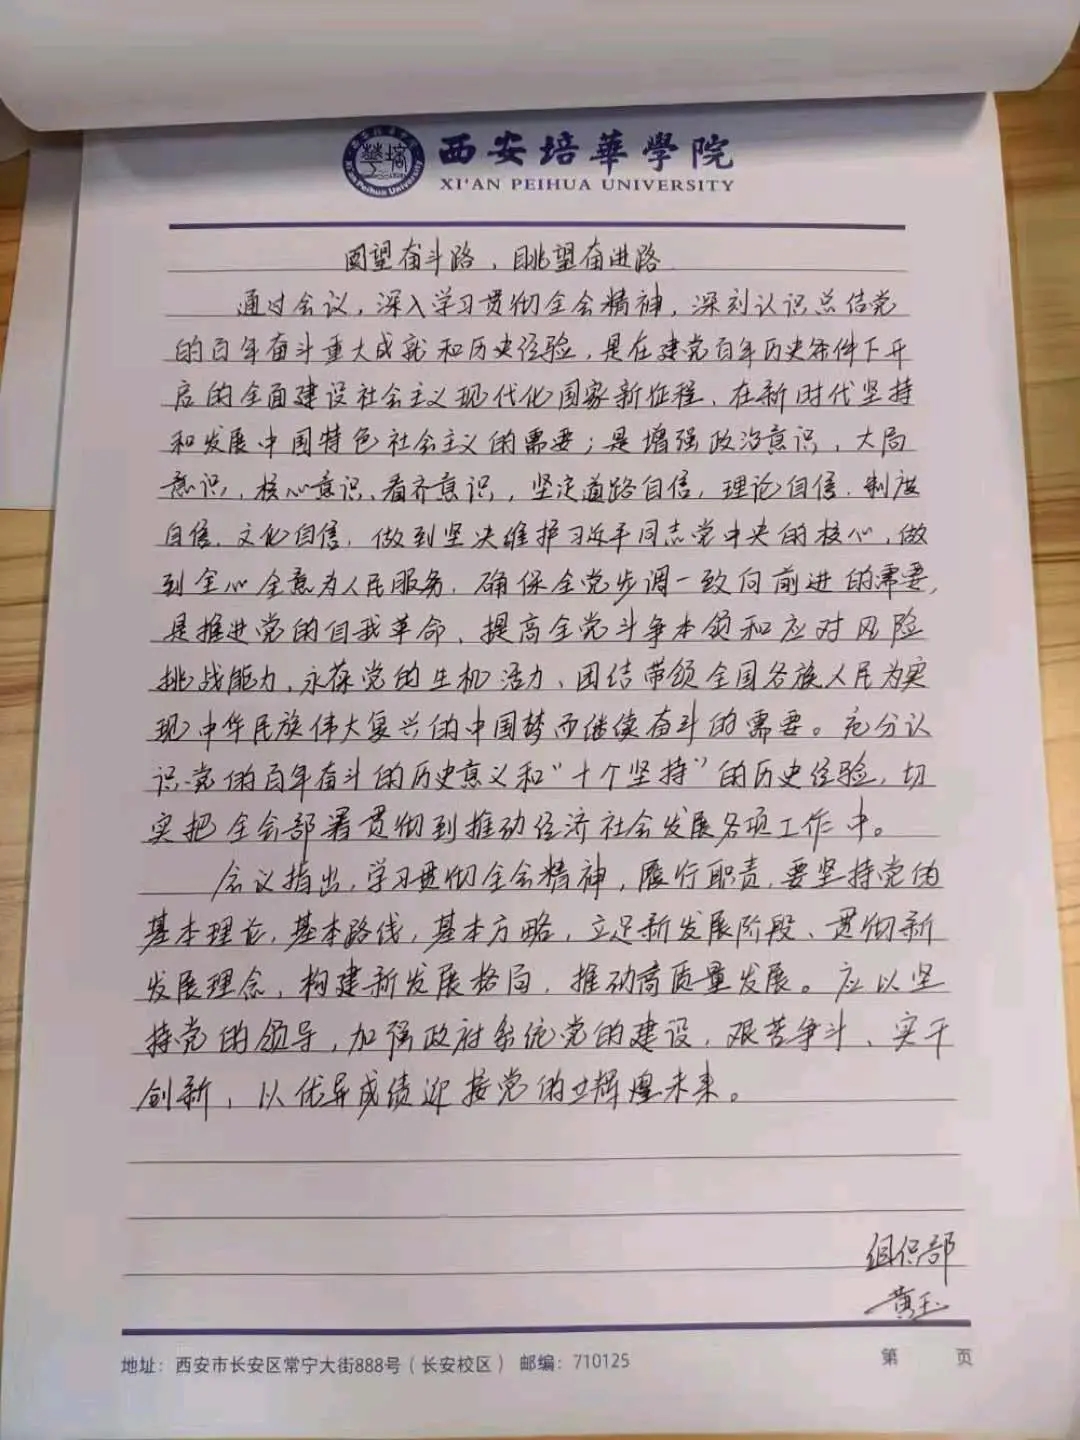 西安培華學院
XI'AN PEIHUA UNIVERSITY
回望奋斗路、眺望奋进路
通过会议，深入学习贯彻全会精神，深刻认识总结党
的百年奋斗重大成就和历史经验，是在建党百年历史条件下开
启的全面建设社会主义现代化国家新征程、在新时代坚持
和发展中国特色社会主义的需要；是增强政治意识，大局
意识，核心意识、看齐意识，坚定道路自信，理论自信、制度
自信、文化自信，做到坚决维护习近平同志党中央的核心，做
到全心全意为人民服务，确保全党步调一致向前进的需要，
是推进党的自我革命、提高全党斗争本领和应对风险
挑战能力、永葆党的生机活力、团结带领全国各族人民为实
现中华民族伟大复兴的中国梦而继续奋斗的需要。充分认
识党的百年奋斗的历史意义和“十个坚持”的历史经验，切
实把全会部署贯彻到推动经济社会发展各项工作中。
会议指出，学习贯彻全会精神，履行职责，要坚持党的
基本理论，基本路线，基本方略，立足新发展阶段、贯彻新
发展理念，构建新发展格局，推动高质量发展。应以坚
持党的领导，加强政府系统党的建设，艰苦争斗、实干
创新，以优异成绩迎接党的立辉煌未来。
组织部
黄玉
地址：西安市长安区常宁大街888号（长安校区） 邮编：710125 第 页